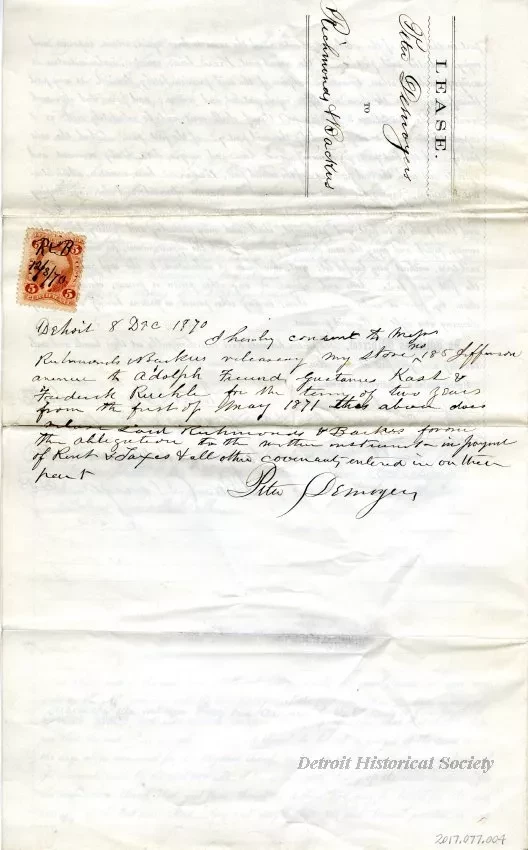 LEASE.
Peter Desnoyers
TO
Richmonds & Backus
R & B
12/8/70
5 5
5 5
Detroit 8 Dec 1870
I hereby consent to Messrs
Richmonds & Backus releasing my store No 185 Jefferson
avenue to Adolph Freund, Gustavus Kast &
Frederick Ruehle for the term of two years
from the first of May 1871 this above does
release said Richmonds & Backus from
the obligation to the within instrument in
of Rent & Taxes & all other covenants entered in on their
part
Peter Desnoyers
Detroit Historical Society
2017.077.004